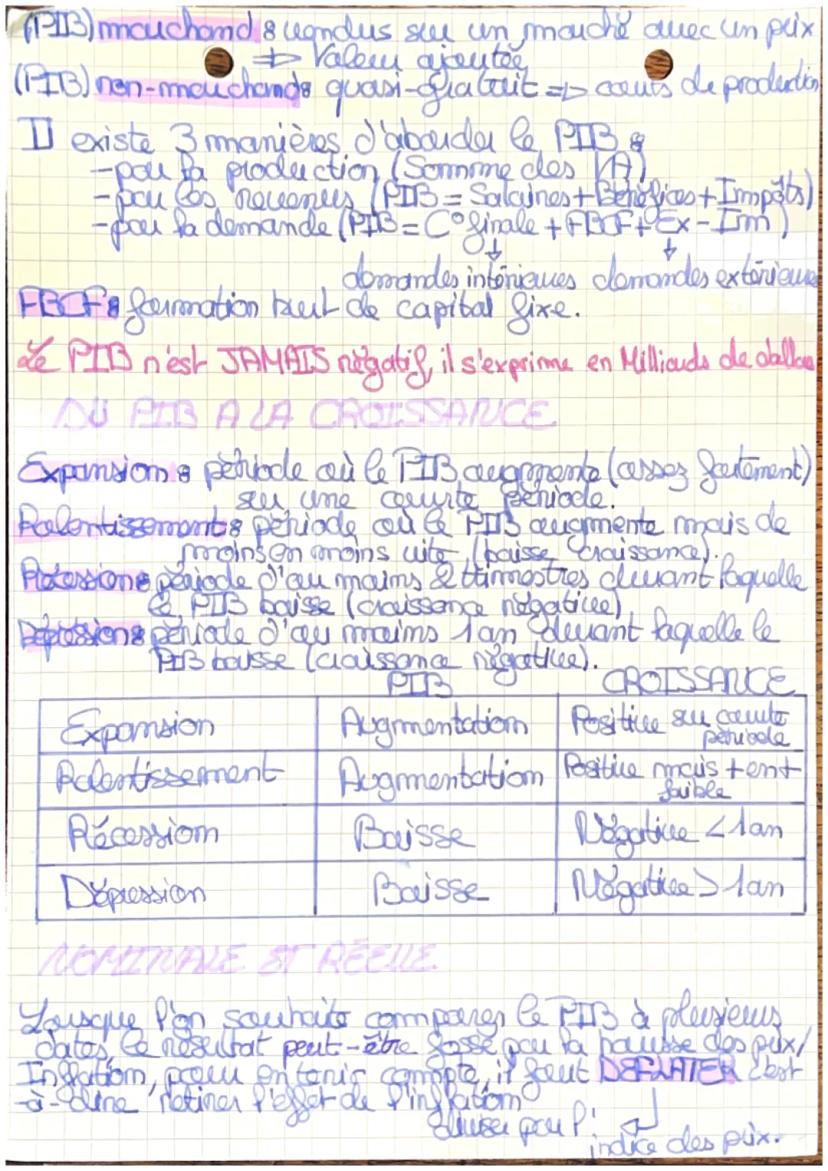 (PIB) marchand : vendus sur un marché avec un prix
⇒ Valeur ajoutée
(PIB) non-marchand : quasi-gratuit ⇒ coûts de production
Il existe 3 manières d'aborder le PIB :
- par la production (Somme des VA)
- par les revenus (PIB = Salaires + Bénéfices + Impôts)
- par la demande (PIB = C° finale + FBCF + Ex - Im)
↓ ↓
demandes intérieures demandes extérieures
FBCF : formation brut de capital fixe.
Le PIB n'est JAMAIS négatif, il s'exprime en Milliards de dollars
DU PIB A LA CROISSANCE
Expansion : période où le PIB augmente (assez fortement)
sur une courte période.
Ralentissement : période où le PIB augmente mais de
moins en moins vite (baisse croissance).
Récession : période d'au moins 2 trimestres durant laquelle
le PIB baisse (croissance négative)
Dépression : période d'au moins 1 an durant laquelle le
PIB baisse (croissance négative).
PIB CROISSANCE
Expansion Augmentation Positive sur courte
période
Ralentissement Augmentation Positive mais + en +
faible
Récession Baisse Négative < 1 an
Dépression Baisse Négative > 1 an
NOMINALE ET RÉELLE
Lorsque l'on souhaite comparer le PIB à plusieurs
dates, le résultat peut-être fossé par la hausse des prix/
Inflation, pour en tenir compte, il faut DEFLATER c'est
-à-dire retirer l'effet de l'inflation
diviser par l'
indice des prix.